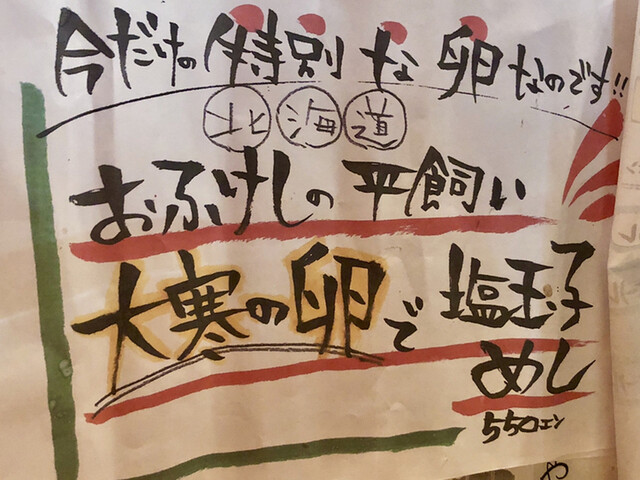 今だけの特別な卵なのです!!
北海道
おふけしの平飼い
大寒の卵で塩玉子
めし
550エン
や